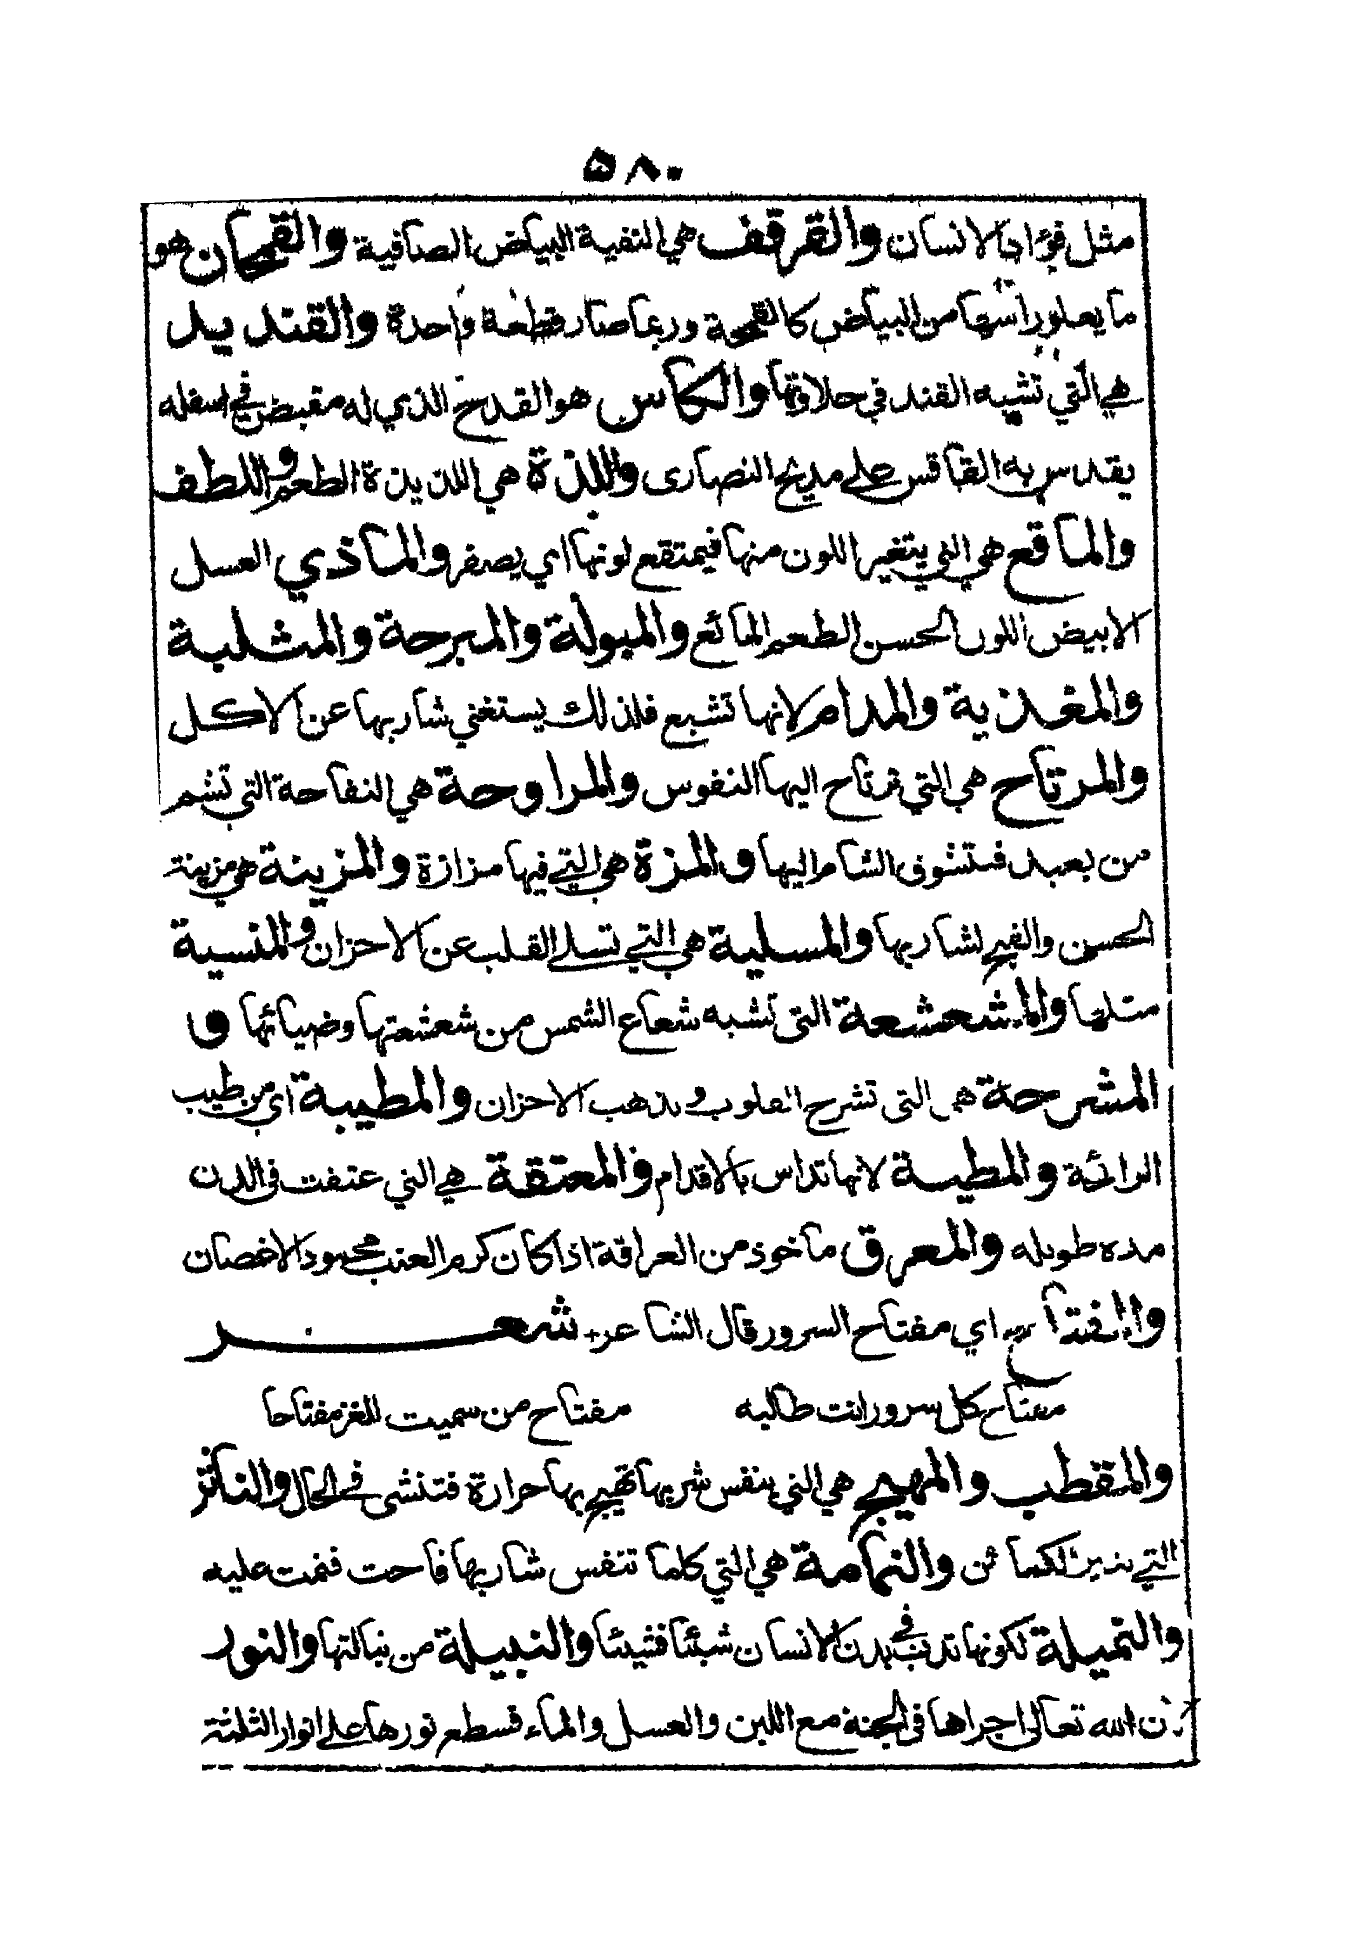 ٥٨٠
مثل فؤاد الانسان والقرقف هي النقية البياض الصافية والقمحان هو
ما يعلو رأسها من البياض كالقمحة وربما صار قطعة واحدة والقنديد
هي التي تشبه القند في حلاوتها والكاس هو القدح الذي له مقبض في اسفله
يقدس به القاقس على مديح النصارى واللذة هي اللذيذة الطعم واللطف
والماقع هي التي يتغير اللون منها فيمتقع لونها اي يصفر والماذي العسل
الابيض اللون الحسن الطعم المائع والمبولة والمبرحة والمثلبة
والمغذية والمدام لانها تشبع فلذلك يستغني شاربها عن الاكل
والمرتاح هي التي ترتاح اليها النفوس والمراوحة هي النفاحة التي تشم
من بعيد فتشوق الشام اليها والمزة هي التي فيها مزازة والمزينة هي مزينة
الحسن والقبح لشاربها والمسلية هي التي تسلي القلب عن الاحزان والمنسية
مثلها والمشعشعة التي تشبه شعاع الشمس من شعشعتها وضيائها و
المشرحة هي التي تشرح القلوب وتذهب الاحزان والمطيبة اي من طيب
الرائحة والمطيبة لانها تداس بالاقدام والمعتقة هي التي عتقت في الدن
مدة طويلة والمعرق ماخوذ من العراقة اذا كان كرم العنب محمود الاغصان
والمفتاح اي مفتاح السرور قال الشاعر شعر
مفتاح كل سرور انت طالبه مفتاح من سميت للغز مفتاحا
والمقطب والمهيج هي التي بنفس شربها تهيج بها حرارة فتنشى في الحال والناكز
التي والنمامة هي التي كلما تنفس شاربها فاحت فنمت عليه
والنميلة لكونها تدب في بدن الانسان شيئا فشيئا والنبيلة من نبالتها والنور
لان الله تعالى اجراها في الجنة مع اللبن والعسل والماء فسطع نورها على انوار الثلثة